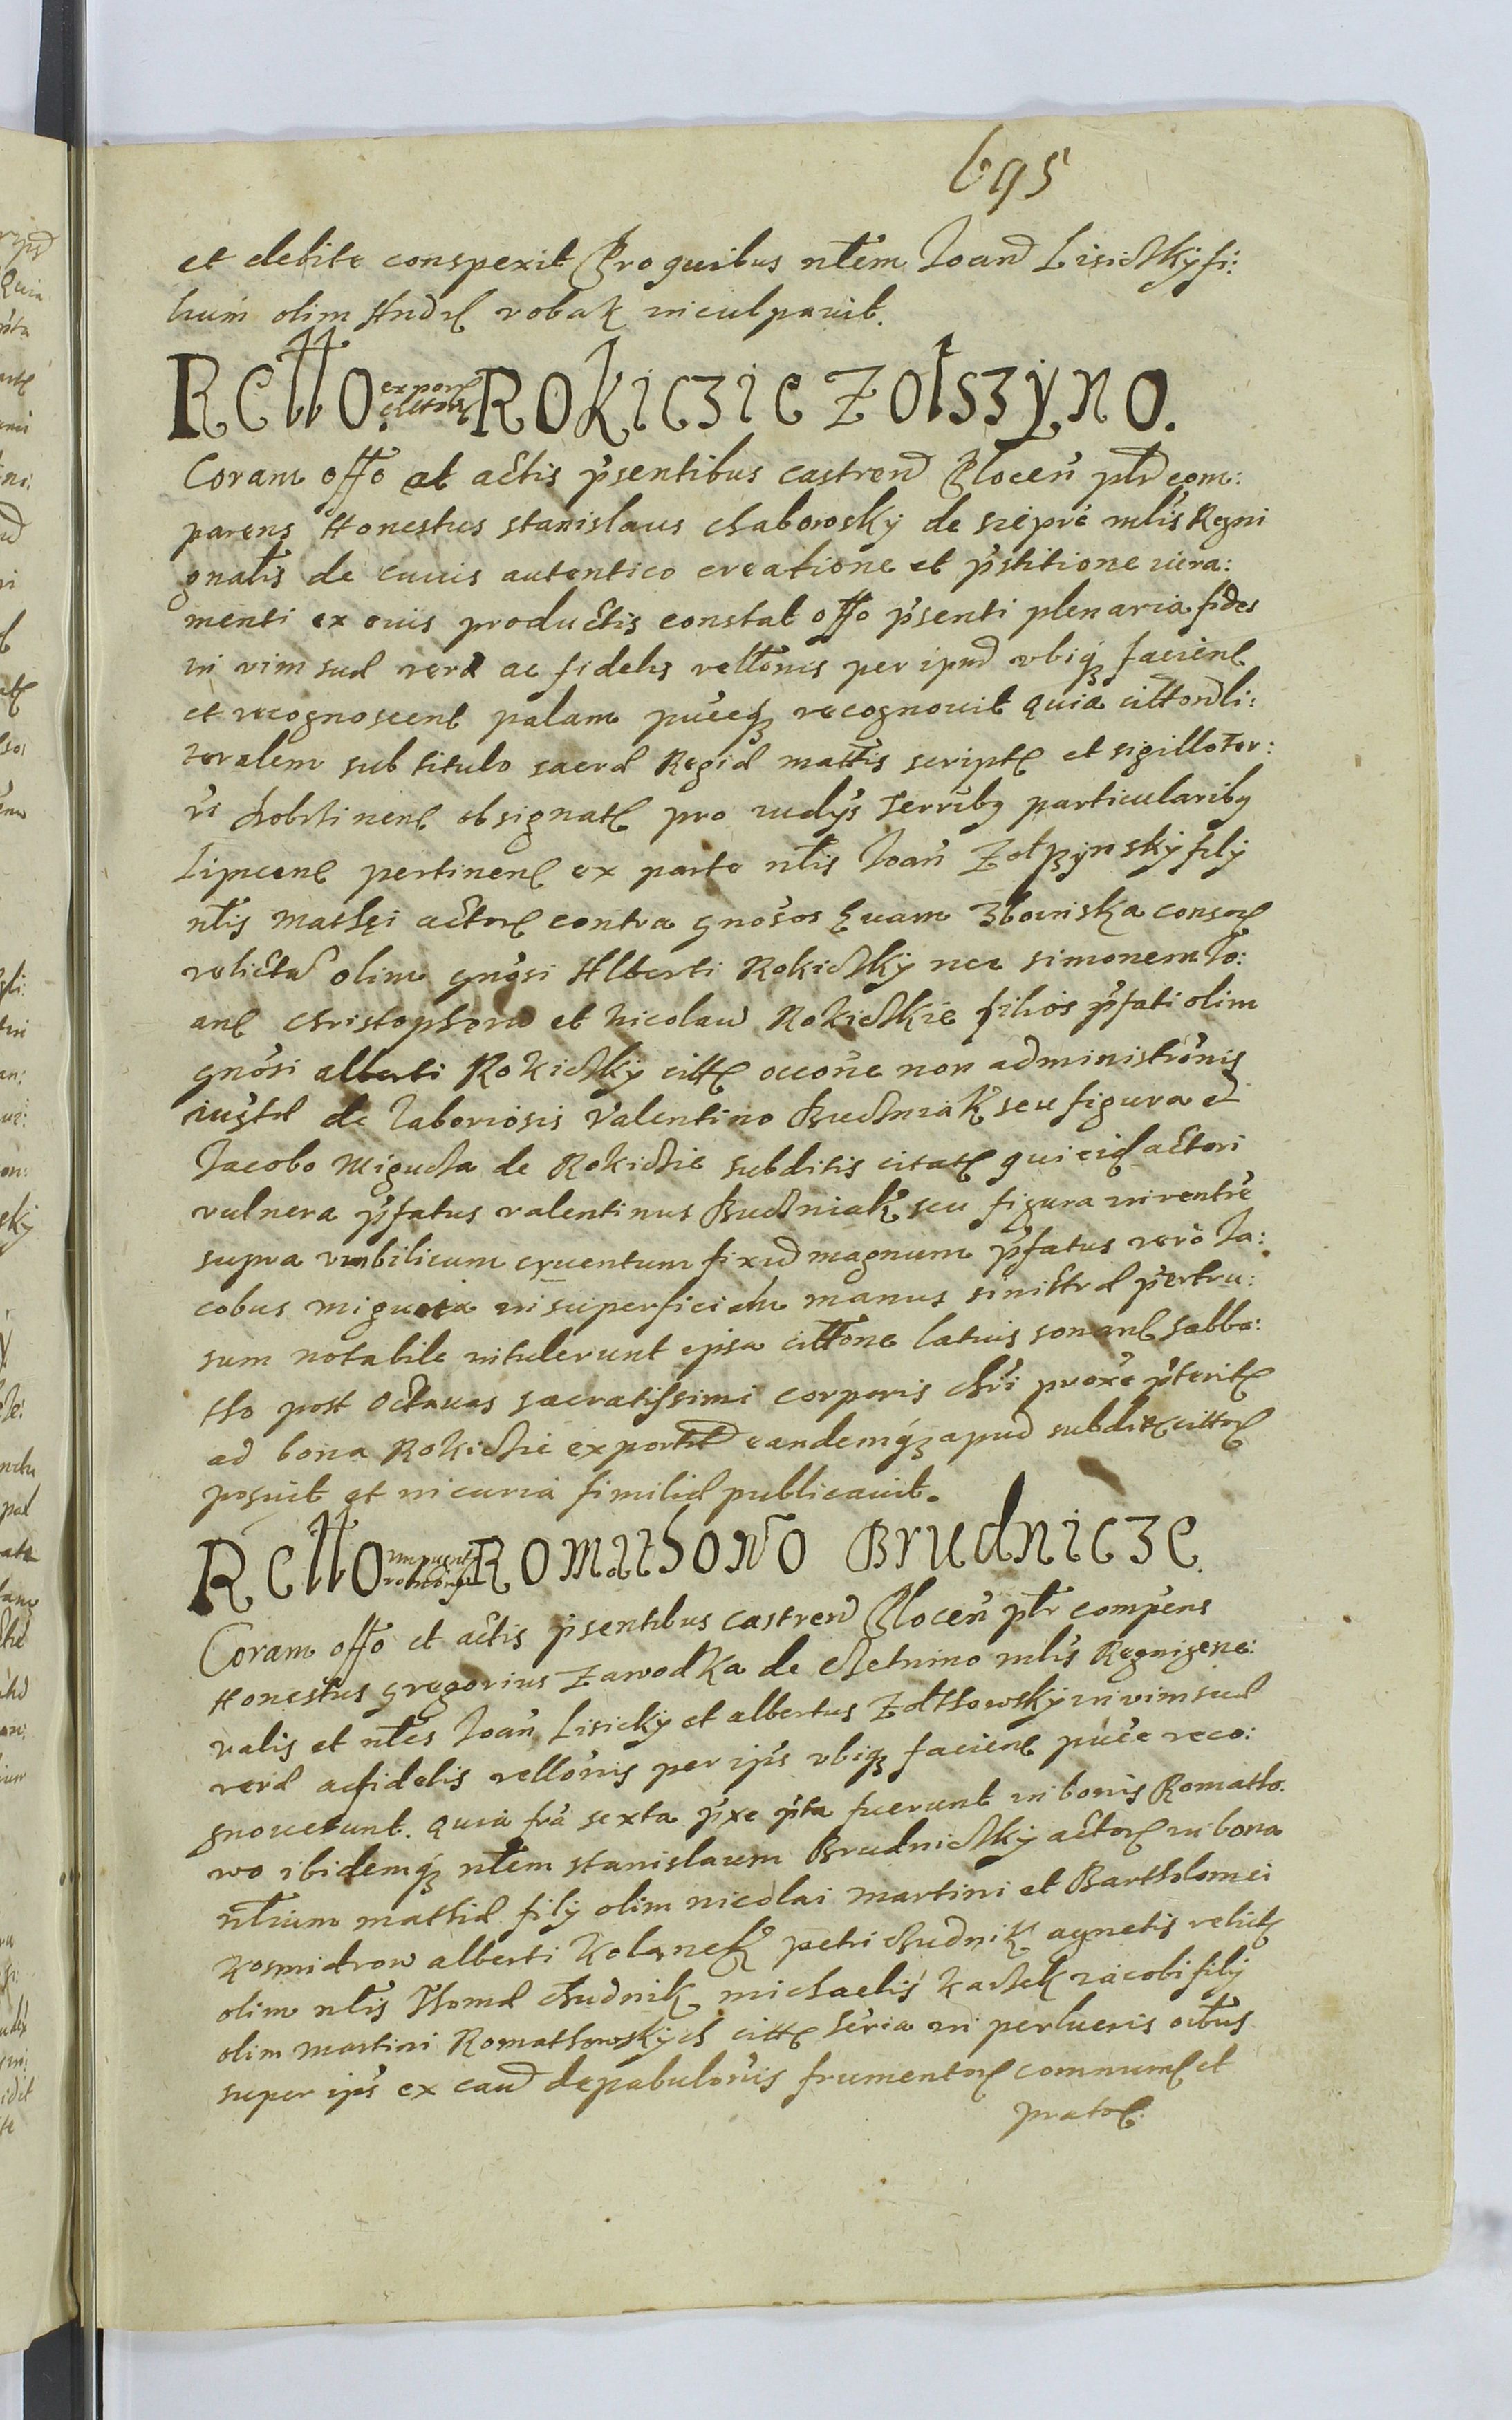 695
et debite conspexit Pro quibus nltem Joan Lisiczky fi:
lium olim Andr robak inculpauit.
Rello export citaois Rokiczie Zolszyno.
Coram offo et actis psentibus castren Plocen pltr com:
parens Honestus stanislaus Chabowsky de Siepre mlis Regni
gnalis de cuius autentico creatione et pstitione iura:
menti ex ouis productis constat offo psenti plenaria fides
in vim sue vere ac fidelis rellonis per ipm vbiq facien
et recognoscen palam puceq recognouit quia citton li:
teralem sub titulo sacre Regie mattis script et sigillo ter:
ris dobrinen obsignat pro iudys terrib particularib
Lipncen pertinen ex parte nltis Joan Zolszynsky fily
nltis mathei actor contra gnosos Euam Zbouiska consor
relicta olim gnosi Alberti Rokiczky nec simonem Jo:
an Christophoru et Nicolau Rokiczkie filios pfati olim
gnosi alberti Rokiczky citt occone non administronis
iustae de laboriosis Valentino Budniak seu figura et
Jacobo Migucza de Rokiczie subditis citat qui eid actori
vulnera pfatus valentinus Budniak seu figura in ventre
supra vmbilicum cruentum fixu magnum pfatus vero Ja:
cobus migucza in superficiem manus sinistre pertru:
sum notabile intulerunt ipsa cittone latius sonan sabba:
tho post octauas sacratissimi corporis chri proxe pterit
ad bona Rokiczie exportit eandemq apud subdit cittor
posuit et in curia familie publicauit.
Rello Romathowo Brudnicze.
Coram offo et actis psentibus castren Plocen pltr compens
Honestus gregorius Zawodka de Chetnino mlis Regni gene:
ralis et nltes Joan Lisicky et albertus Zoltowsky in vim sue
vere ac fidelis rellonis per ips vbiq facien puce reco:
gnouerunt. quia fra sexta pxe pta fuerunt in bonis Romatho:
wo ibidemq nltem stanislaum Brudniczky actor in bona
nltium mathie fily olim nicolai martini et Bartholomei
Kosmidrow alberti Kolanek petri Chudnik agnetis relict
olim nltis Thome Chudnik michaelis Kachek iacobi fily
olim martini Romathowskych citt seria in perlucris oibus
super ips ex cau depabulonis frumentor commun et
prator.